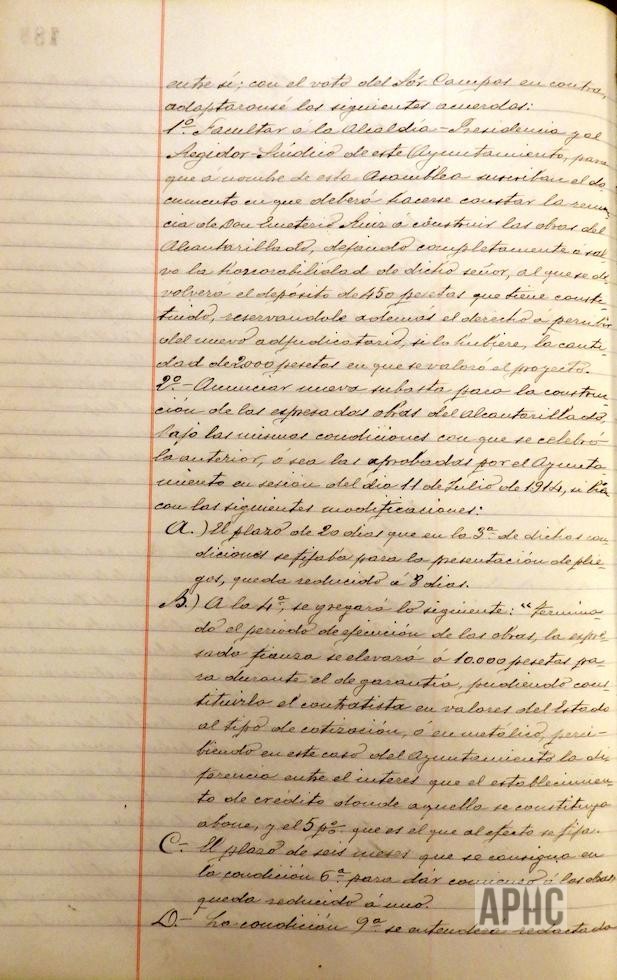 entre sí; con el voto del Sor Campos en contra,
adaptaronse los siguientes acuerdos:
1º Facultar á la Alcaldía-Presidencia y al
Regidor-Síndico de este Ayuntamiento, para
que á nombre de esta Asamblea suscriban el do-
cumento en que deberá hacerse constar la renun-
cia de Don Emeterio Ruiz á construir las obras del
Alcantarillado, dejando completamente á sal-
vo la honorabilidad de dicho señor, al que se de-
volverá el depósito de 450 pesetas que tiene consti-
tuido, reservandole además el derecho á percibir
del nuevo adjudicatario, si lo hubiere, la canti-
dad de 2000 pesetas en que se valoró el proyecto.
2º- Anunciar nueva subasta para la construc-
ción de las espresadas obras del Alcantarillado,
bajo las mismas condiciones con que se celebró
la anterior, ó sea las aprobadas por el Ayunta-
miento en sesión del dia 11 de Julio de 1914, si bien
con las siguientes modificaciones:
A.) El plazo de 20 dias que en la 3ª de dichas con-
diciones se fijaba para la presentación de plie-
gos, queda reducido á 8 dias.
B.) A la 4ª, se gregará lo siguiente: "Termina-
do el periodo de ejecución de las obras, la espre-
sada fianza se elevará á 10.000 pesetas pa-
ra durante el de garantía, pudiendo cons-
tituirla el contratista en valores del Estado
al tipo de cotización, ó en metálico, perci-
biendo en este caso del Ayuntamiento la di-
ferencia entre el interes que el establecimien-
to de crédito donde aquella se constituya
abone, y el 5 pº que es el que al efecto se fija.
C- El plazo de seis meses que se consigna en
la condición 6ª para dár comienzo á las obras
queda reducido á uno.
D.- La condición 9ª se entenderá redactada
APHC